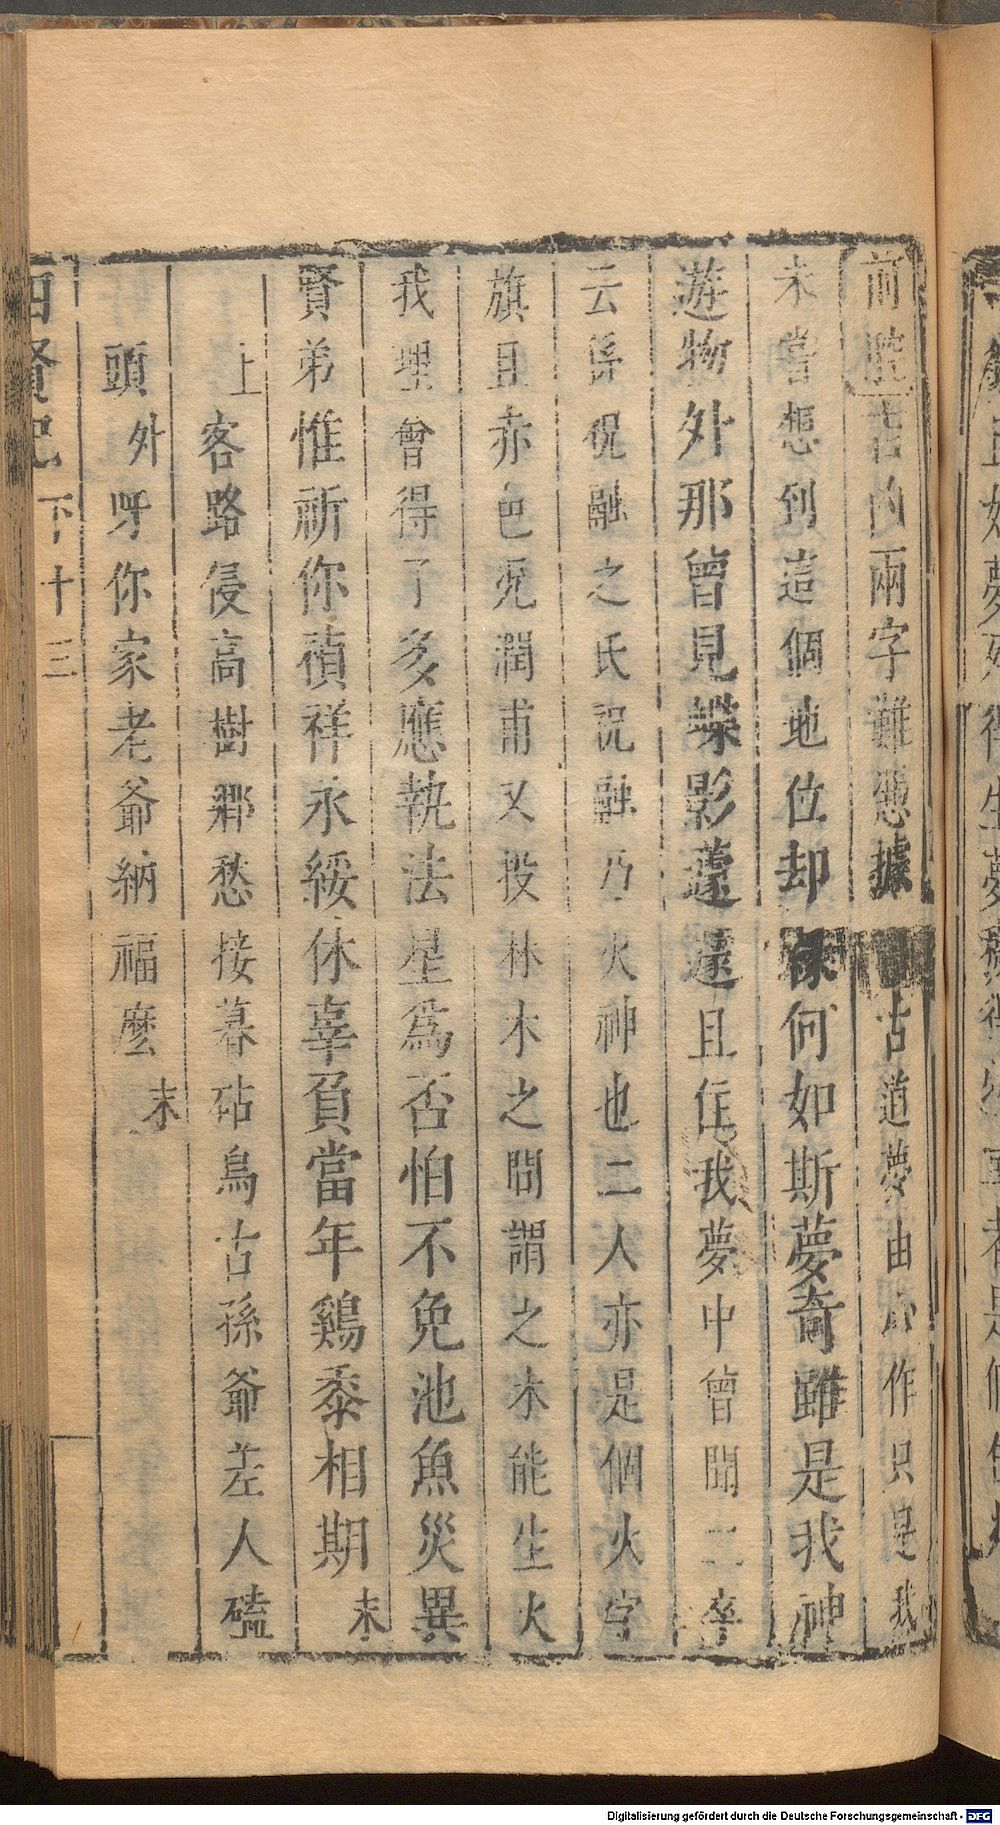 前腔 吉凶兩字難憑據 古道夢由心作只是我
未嘗想到這個地位却 緣何如斯夢奇雖是我神
遊物外那曾見蝶影蘧蘧且住我夢中曾聞二卒
云係祝融之氏祝融乃火神也二人亦是個火字
旗且赤色况潤甫又投林木之間謂之木能生火
我理會得了多應執法星爲否怕不免池魚災異
賢弟惟祈你禎祥永綏休辜負當年鷄黍相期 末
上 客路侵高樹鄉愁接暮砧烏古孫爺差人磕
頭 外 呀你家老爺納福麽 末
四賢記 下 十三
Digitalisierung gefördert durch die Deutsche Forschungsgemeinschaft - DFG